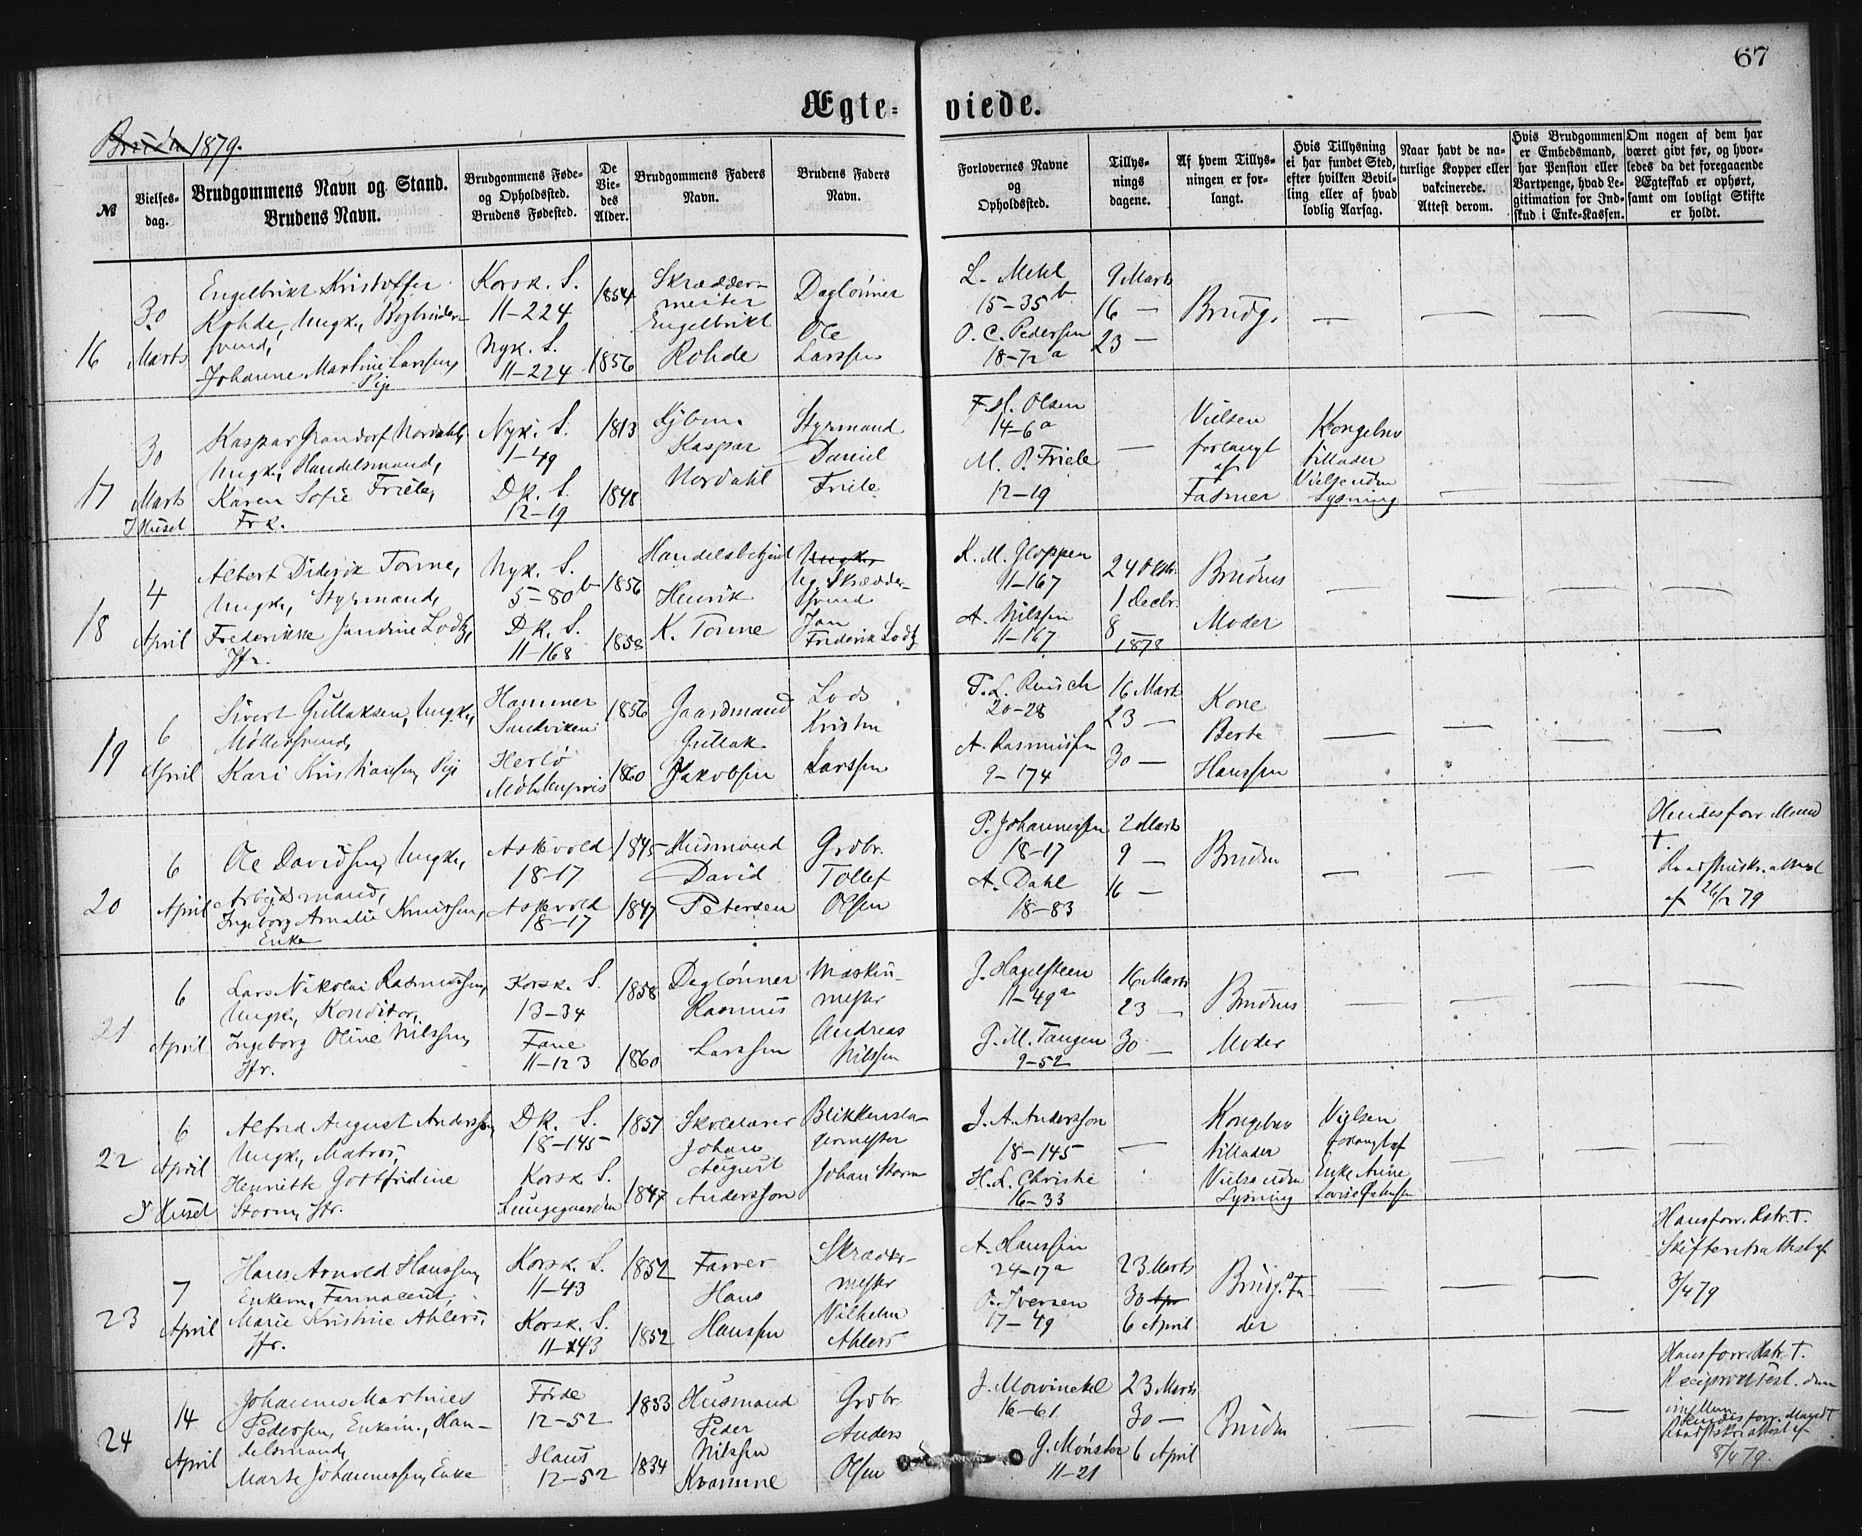 67
Ægte- viede.
Bruden 1879.
№
Vielses-
dag.
Brudgommens Navn og Stand.
Brudens Navn.
Brudgommens Føde-
og Opholdssted.
Brudens Fødested.
De
Vie-
des
Alder.
Brudgommens Faders
Navn.
Brudens Faders
Navn.
Forlovernes Navne
og
Opholdssted.
Tillys-
nings
dagene.
Af hvem Tillys-
ningen er for-
langt.
Hvis Tillysning
ei har fundet Sted,
efter hvilken Bevil-
ling eller af hvad
lovlig Aarsag.
Naar havt de na-
turlige Kopper eller
vakcinerede.
Attest derom.
Hvis Brudgommen
er Embedsmand,
har Pension eller
Vartpenge, hvad Le-
gitimation for Ind-
skud i Enke-Kassen.
Om nogen af dem har
været givt før, og hvor-
ledes da det foregaaende
Ægteskab er ophørt,
samt om lovligt Skifte
er holdt.
16
30
Marts
Engelbrikt Kristoffer
Rohde, Ungk., Bogbinder-
svend,
Johanne Martine Larssen,
Pige
Korsk. S.
11-224
Nyk. S.
11-224
1854
1856
Skrædder-
mester
Engelbrikt
Rohde
Daglønner
Ole
Larssen
L. Mehl
15-35b
O. C. Pedersen
18-72a
9 Marts
16 —
23 —
Brudg.
17
30
Marts
I Huset
Kaspar Nordahl,
Ungk., Handelsmand,
Karen Sofie Friele,
Frk.
Nyk. S.
1-49
Dk. S.
12-19
1813
1848
Kjbm.
Kaspar
Nordahl
Styrmand
Daniel
Friele
F. H. Olsen
14-6a
M. P. Friele
12-19
Vielsen
forlangt
af
Fasmer
Kongebrev
tillader
Vielse uden
Lysning
18
4
April
Albert Diderik Tonne,
Ungk., Styrmand,
Frederikke Jandine Lodtz,
Jfr.
Nyk. S.
5-80b
Dk. S.
11-168
1856
1858
Handelsbetjent
Henrik
K. Tonne
Ungk.
Ug. Skrædder-
svend
Jan
Frederik Lodtz
K. M. Gloppen
11-167
A. Nilssen
11-167
24
1 Decbr.
8 —
1878
Brudens
Moder
19
6
April
Sivert Gullaksen, Ungk.,
Møllersvend,
Kari Kristiansen, Pige
Hammer
Sandviken
Herlø
Møhlenpris
1856
1860
Gaardmand
Gullak
Jakobsen
Lods
Kristen
Larssen
T. L. Reusch
20-28
A. Rasmussen
9-174
16 Marts
23 —
30 —
Kone
Berte
Hanssen
20
6
April
Ole Davidsen, Ungk.,
Arbeidsmand,
Ingeborg Amalie Knutssen,
Enke
Askvold
18-17
Askvold
18-17
1845
1847
Husmand
David
Petersen
Grdbr.
Tollef
Olsen
P. Johannessen
18-17
A. Dahl
18-83
2 Marts
9 —
16 —
Bruden
Hendes forr. Mand
†.
af 26/2 79
21
6
April
Lars Nikolai Rasmussen,
Ungk., Konditor,
Ingeborg Oline Nilssen,
Jfr.
Korsk. S.
13-34
Fane
11-123
1858
1860
Daglønner
Rasmus
Larssen
Maskin-
mester
Andreas
Nilssen
J. Hagelsteen
11-49a
J. M. Tangen
9-52
16 Marts
23 —
30 —
Brudens
Moder
22
6
April
I Huset
Alfred August Andersson,
Ungk., Matros,
Henriette Gottfridine
Storm, Jfr.
Dk. S.
18-145
Korsk. S.
Kungegaarden
1851
1847
Skolelærer
Johan
August
Andersson
Blikkensla-
germester
Johan Storm
J. A. Andersson
18-145
H. L. Christie
16-33
Kongebrev
tillader
Vielse uden
Lysning
Vielsen
forlangt af
Enke Anne
23
7
April
Hans Arnold Hanssen,
Enkem., Farmaceut,
Marie Kristine Ahlers,
Jfr.
Korsk. S.
11-43
Korsk. S.
11-43
1852
1852
Farver
Hans
Hanssen
Skrædder-
mester
Vilhelm
Ahlers
A. Hanssen
24-17a
O. Iversen
17-49
23 Marts
30 Apr
6 April
Brudg. Fa-
der
Hans forr. Hstr. †.
Skifteretsattest af
3/4 79
24
14
April
Johannes Martinus
Pedersen, Enkem., Han-
delsmand,
Marte Johannessen, Enke
Førde
12-52
Haus
12-52
1833
1834
Husmand
Peder
Nilssen
Kvamme
Grdbr.
Anders
Olsen
J. Mowinckel
16-61
J. Mønster
11-21
23 Marts
30 —
6 April
Bruden
Hans forr. Hstr. †.
Reciprokt Test. dem
imellem
Hendes forr. Mand †
8/4 79.